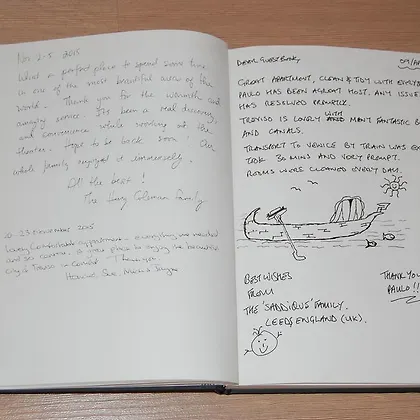 Nov 2-5 2015
What a perfect place to spend some time
in one of the most beautiful areas of the
world. Thank you for the warmth and
amazing service. It's been a real discovery
and convenience while working at the
theater. Hope to be back soon! Our
whole family enjoyed it immensely.
All the best!
The Family
23 November 2015
Lovely comfortable appartment - everything we needed
and so central. A great place to enjoy the beautiful
city of Treviso
DEAR GUEST BOOK,
GREAT APARTMENT, CLEAN & TIDY WITH EVERY
PAULO HAS BEEN A GREAT HOST. ANY ISSUE
HAS RESOLVED PROMPTLY.
TREVISO IS LOVELY WITH MANY FANTASTIC B
AND CANALS.
TRANSPORT TO VENICE BY TRAIN WAS EA
TOOK 30 MINS AND VERY PROMPT.
ROOMS WERE CLEANED EVERY DAY.
BEST WISHES
FROM
THE 'SADDIQUE' FAMILY.
LEEDS ENGLAND (UK).
THANK YOU
PAULO!!